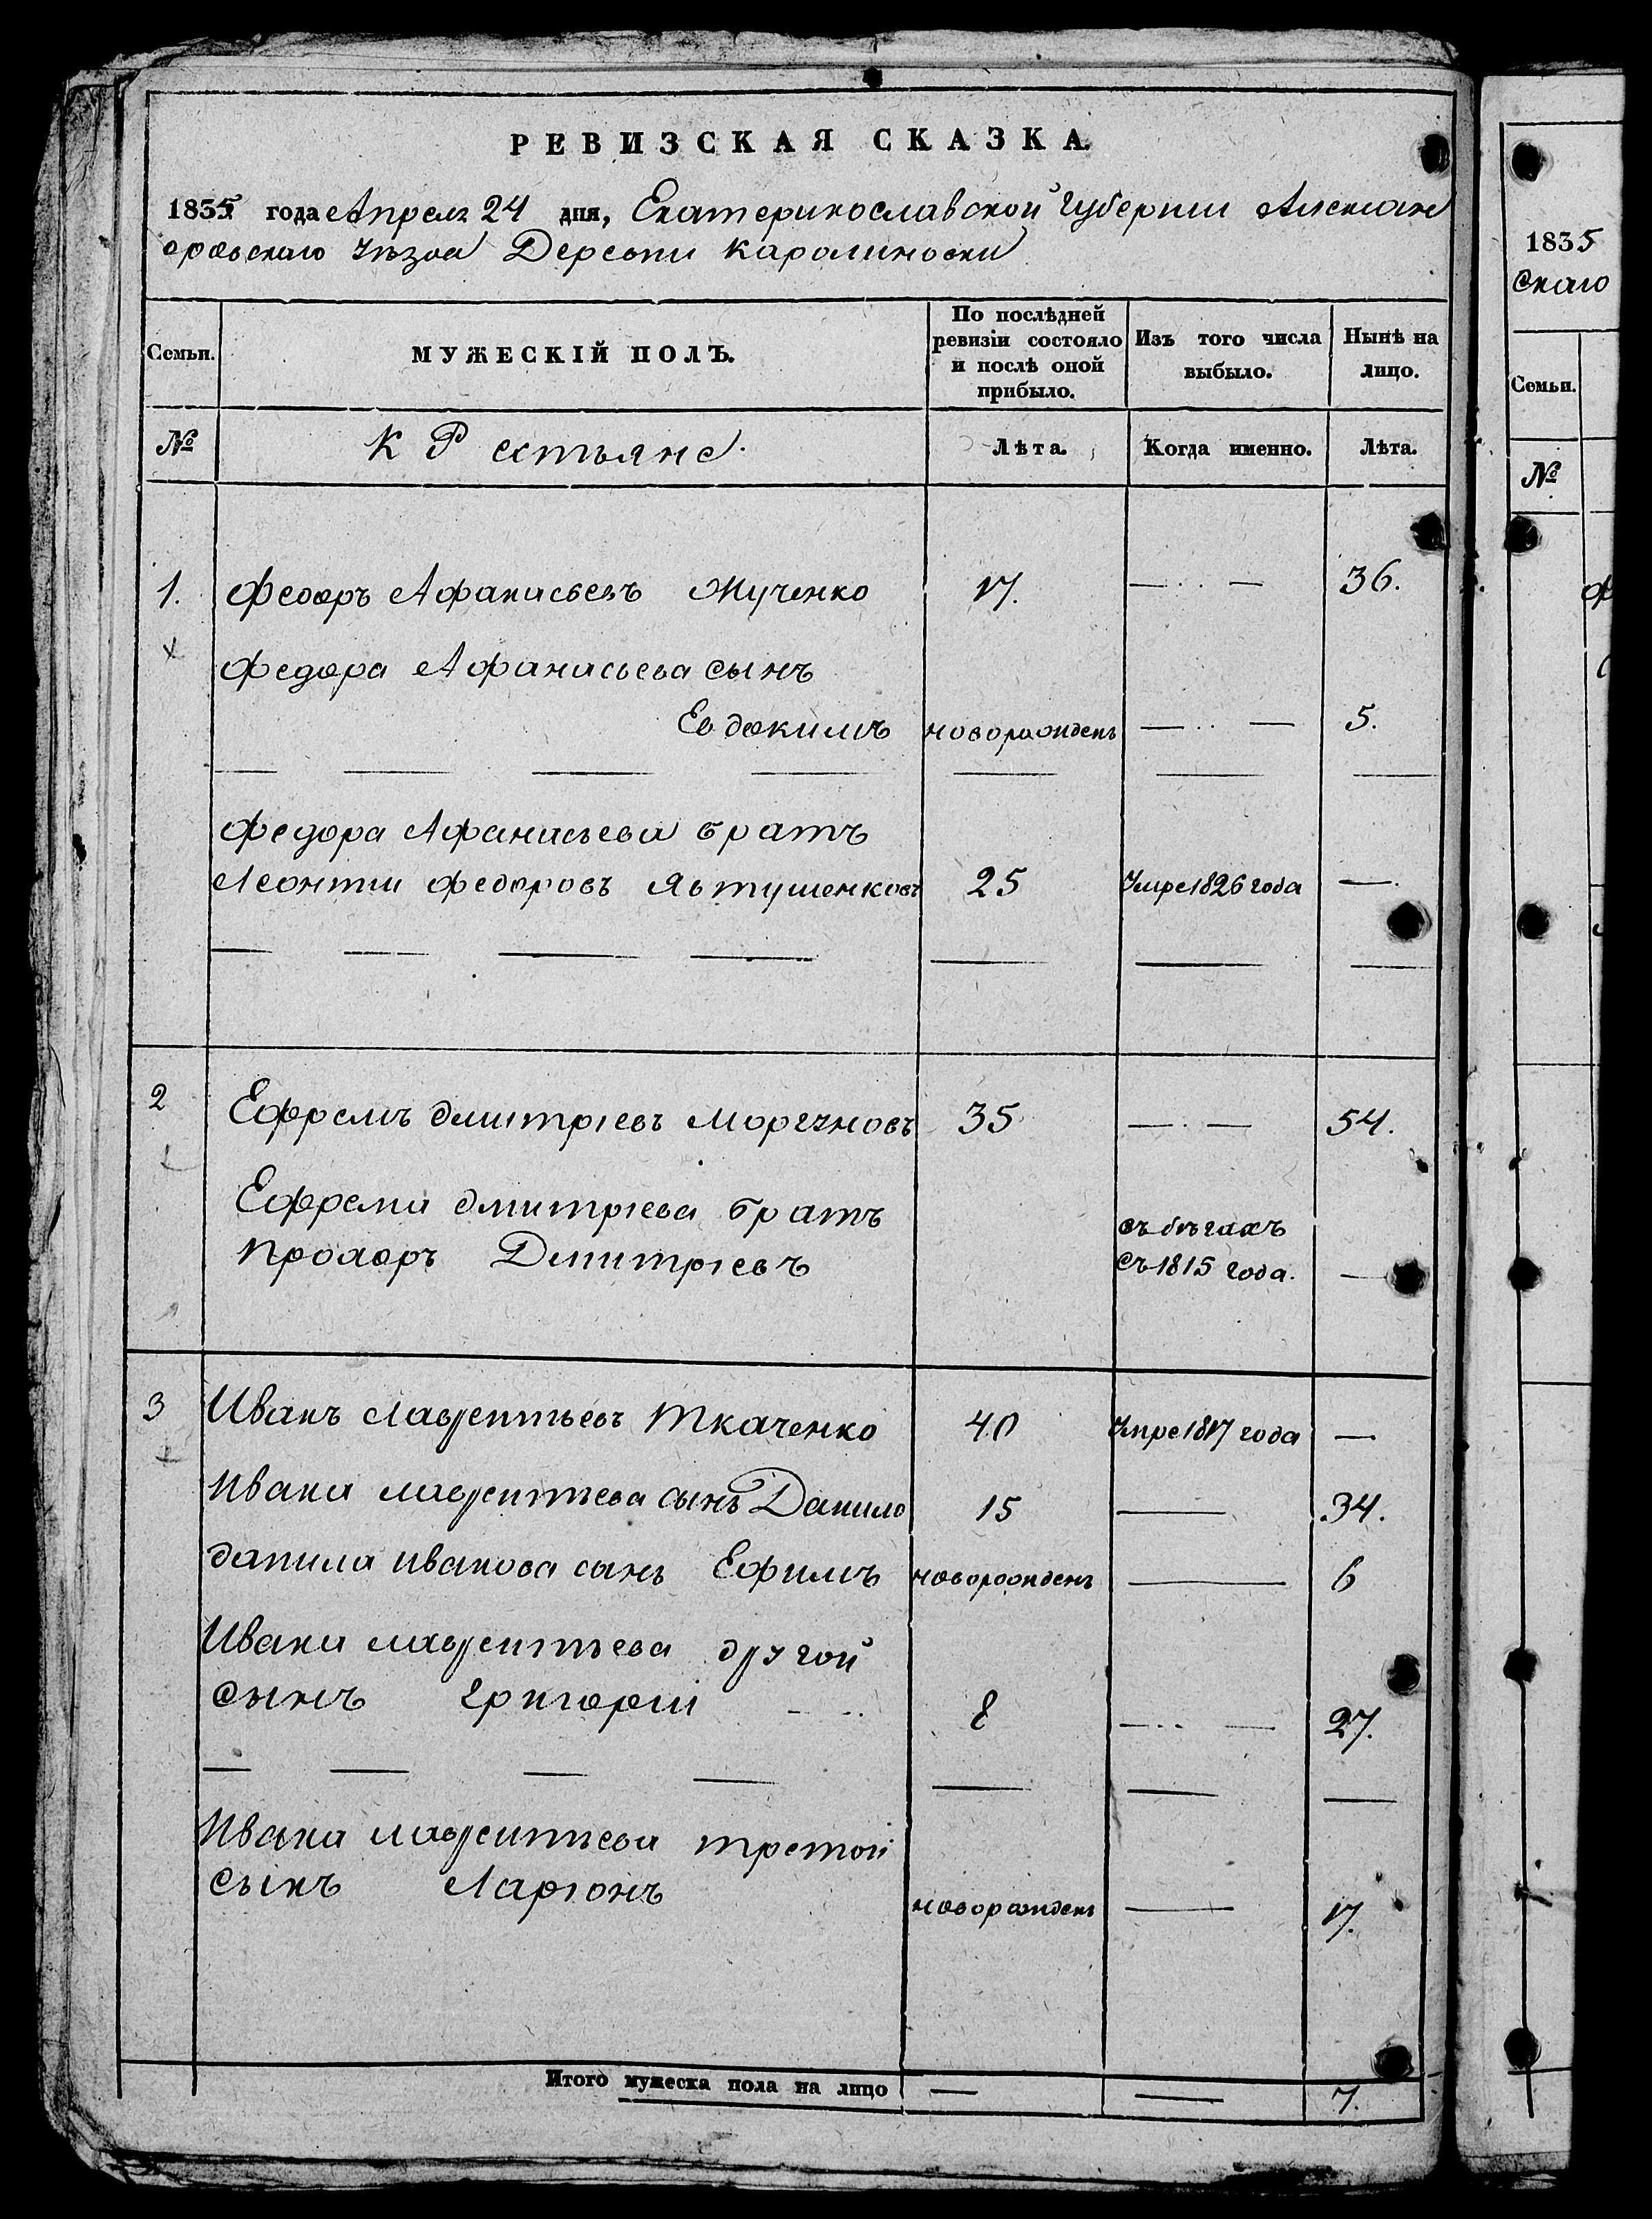 РЕВИЗСКАЯ СКАЗКА.
1835 года Апреля 24 дня, Екатеринославской Губернии Алексан
дровскаго Уѣзда Деревни Каролиновки
Семьи.
МУЖЕСКІЙ ПОЛЪ.
По послѣдней ревизіи состояло и послѣ оной прибыло.
Изъ того числа выбыло.
Нынѣ на лицо.
№ Крестьяне. Лѣта. Когда именно. Лѣта.
1. Федоръ Афанасьевъ Жученко 17. — 36.
Федора Афанасьева сынъ
Евдокимъ новорожденъ — 5.
Федора Афанасьева братъ
Леонтии Федоровъ Явтушенковъ 25 Умре 1826 года —
2 Ефремъ дмитріевъ 35 — 54.
Ефрема дмитріева братъ въ бѣгахъ
Прохоръ Дмитріевъ съ 1815 года. —
3 Иванъ Лаврентьевъ Ткаченко 40 Умре 1817 года —
Ивана лаврентьева сынъ Данило 15 — 34.
данила иванова сынъ Ефимъ новорожденъ — 6
Ивана лаврентьева другой
сынъ григорій 8 — 27.
Ивана лаврентьева третой
сынъ Ларіонъ новорожденъ — 17.
Итого мужеска пола на лицо — — 7.
1835
скаго
Семьи.
№